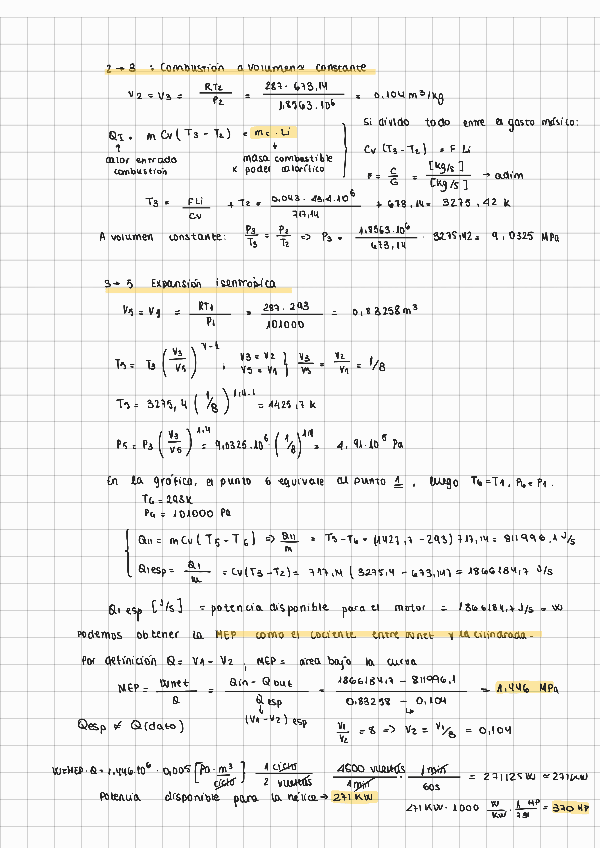 2 → 3 : Combustión a volumen constante
V2 = V3 = RT2 / P2 = 287 · 673,14 / 1,8563 · 10^6 = 0,104 m³/kg
QI = m Cv (T3 - T2) = mc · Li
Si divido todo entre el gasto másico:
Cv (T3 - T2) = F Li
calor entrada combustión
masa combustible x poder calorífico
F = C/G = [kg/s] / [kg/s] → adim
T3 = F Li / Cv + T2 = 0,043 · 43,4 · 10^6 / 717,14 + 673,14 = 3275,42 K
A volumen constante: P3/T3 = P2/T2 => P3 = 1,8563 · 10^6 / 673,14 · 3275,42 = 9,0325 MPa
3 → 5 Expansión isentrópica
V5 = V1 = RT1 / P1 = 287 · 293 / 101000 = 0,83258 m³
T5 = T3 (V3/V5)^γ-1 ; V3 = V2 V5 = V1 } V3/V5 = V2/V1 = 1/8
T5 = 3275,4 (1/8)^1,4-1 = 1425,7 K
P5 = P3 (V3/V5)^1,4 = 9,0325 · 10^6 · (1/8)^1,4 = 4,91 · 10^5 Pa
En la gráfica, el punto 6 equivale al punto 1, luego T6 = T1, P6 = P1.
T6 = 293 K
P6 = 101000 Pa
QII = m Cv (T5 - T6) => QII/m = T5 - T6 = (1427,7 - 293) 717,14 = 811996,1 J/s
QIesp = QI/m = Cv (T3 - T2) = 717,14 (3275,4 - 673,14) = 1866184,7 J/s
QI esp [J/s] = potencia disponible para el motor = 1866184,7 J/s = W
Podemos obtener la MEP como el cociente entre Wnet y la cilindrada.
Por definición Q = V1 - V2 , MEP = area bajo la curva
MEP = Wnet / Q = Qin - Qout / Q esp = 1866184,7 - 811996,1 / 0,83258 - 0,104 = 1,446 MPa
(V1 - V2) esp
Qesp ≠ Q (dato)
V1/V2 = 8 => V2 = V1/8 = 0,104
W=MEP · Q = 1,446 · 10^6 · 0,005 [Pa · m³ / ciclo] 1 ciclo / 2 vueltas · 4500 vueltas / 1 min · 1 min / 60s = 271125 W ≈ 271 KW
Potencia disponible para la hélice → 271 KW
271 KW · 1000 W/KW · 1 HP / = 370 HP